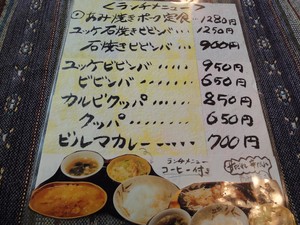 <ランチメニュー>
①あみ焼きポーク定食…1280円
ユッケ石焼きビビンバ…1250円
石焼きビビンバ…900円
ユッケビビンバ……950円
ビビンバ………650円
カルビクッパ………850円
クッパ………650円
ビルマカレー……700円
ランチメニュー
コーヒー付き